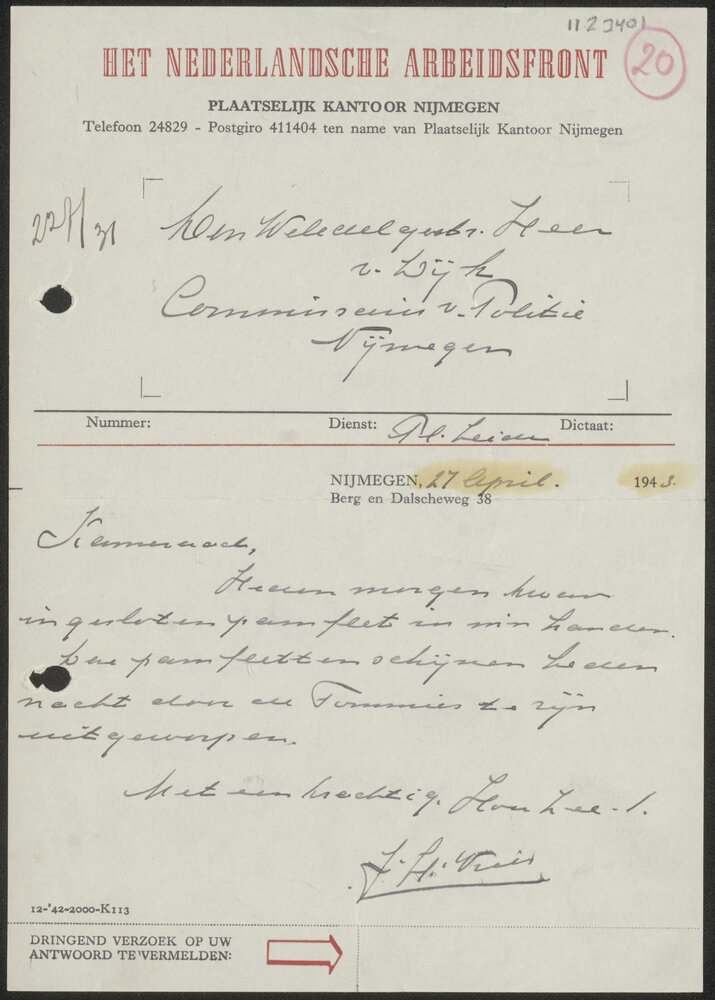 11.2 3401
20
HET NEDERLANDSCHE ARBEIDSFRONT
PLAATSELIJK KANTOOR NIJMEGEN
Telefoon 24829 - Postgiro 411404 ten name van Plaatselijk Kantoor Nijmegen
Den Weledelgestr. Heer
v. Dijk
Commissaris v. Politie
Nijmegen
Nummer:
Dienst: Pl. Leider
Dictaat:
NIJMEGEN, 27 April. 1943.
Berg en Dalscheweg 38
Kameraad,
Heden morgen kwam
ingesloten pamflet in m'n handen.
Deze pamfletten schijnen heden
nacht door de Tommies te zijn
uitgeworpen.
Met een krachtig. Hou Zee!.
J. H.
12-'42-2000-K113
DRINGEND VERZOEK OP UW
ANTWOORD TE VERMELDEN: